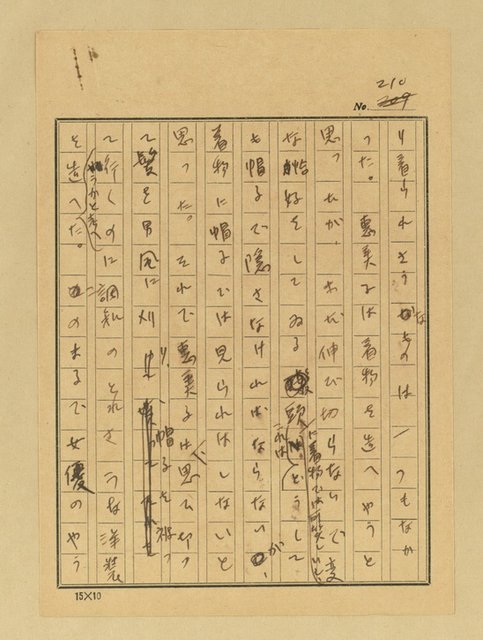 210
No. 209
り着られさうなものは一つもなか
つた。 恵美子は着物を造へやうと
思つたが、まだ伸び切らないで変
な恰好をしてゐる頭に着物では可笑しいし、それはどうして
も帽子で隠さなければならないが、
着物に帽子では見られはしないと
思つた。 それで恵美子は思ひ切つ
て髪を男風に刈り、帽子を被つ
て行くのに調和のとれさうな洋装
を造へた。 このまるで女優のやう
やうかと考へ
15×10